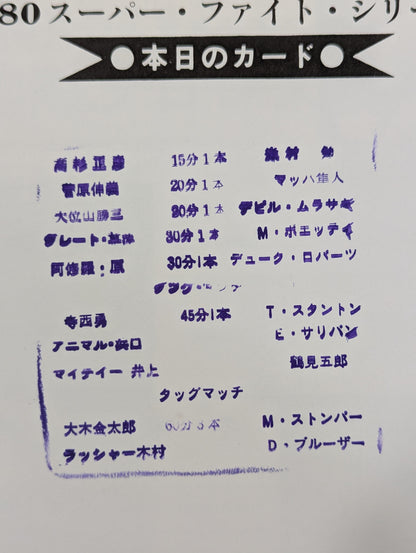 80スーパー・ファイト・シリー
●本日のカード●
高杉正彦 15分1本 米村 勉
菅原伸義 20分1本 マッハ隼人
大位山勝三 20分1本 デビル・ムラサキ
グレート・草津 30分1本 M・ポエッティ
阿修羅・原 30分1本 デューク・ロバーツ
寺西勇 45分1本 T・スタントン
アニマル・浜口 E・サリバン
マイテイー 井上 鶴見五郎
タッグマッチ
大木金太郎 60分3本 M・ストンパー
ラッシャー木村 D・ブルーザー